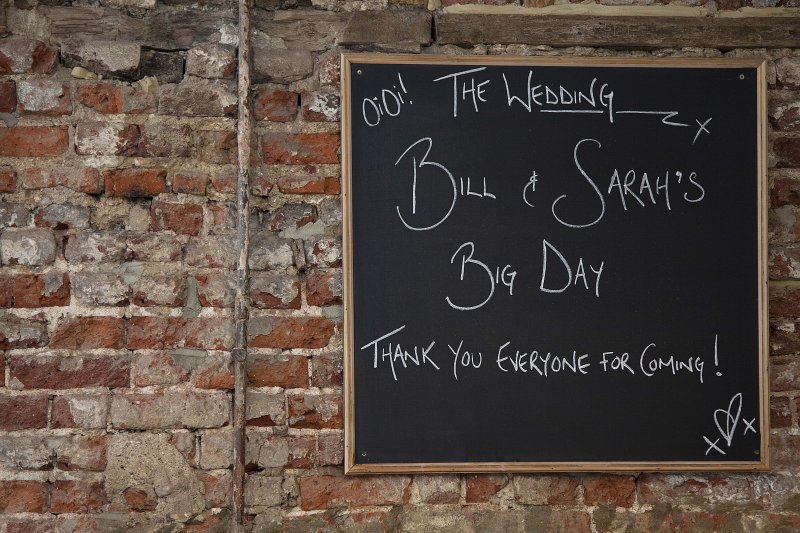 OiOi! THE WEDDING x
BILL & SARAH'S
BIG DAY
THANK YOU EVERYONE FOR COMING!
x x